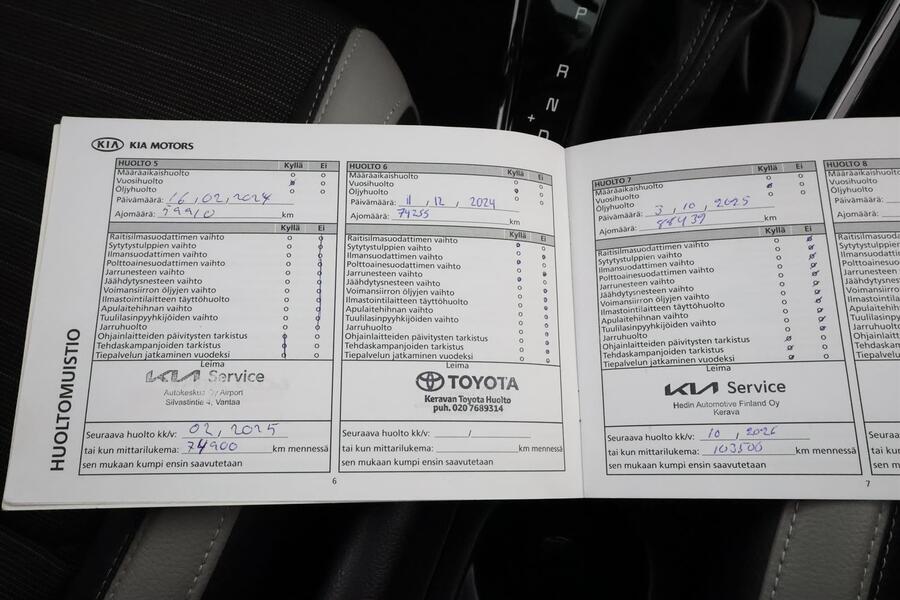 P
R
N
+
D
KIA KIA MOTORS
HUOLTOMUISTIO
HUOLTO 5 Kyllä Ei
Määräaikaishuolto
Vuosihuolto
Öljyhuolto
Päivämäärä: 16, 02, 2024
Ajomäärä: km
Kyllä Ei
Raitisilmasuodattimen vaihto
Sytytystulppien vaihto
Ilmansuodattimen vaihto
Polttoainesuodattimen vaihto
Jarrunesteen vaihto
Jäähdytysnesteen vaihto
Voimansiirron öljyjen vaihto
Ilmastointilaitteen täyttöhuolto
Apulaitehihnan vaihto
Tuulilasinpyyhkijöiden vaihto
Jarruhuolto
Ohjainlaitteiden päivitysten tarkistus
Tehdaskampanjoiden tarkistus
Tiepalvelun jatkaminen vuodeksi
Leima
KIA Service
Autokeskus Oy Airport
Silvastintie, Vantaa
Seuraava huolto kk/v: 02, 2025
tai kun mittarilukema: 74900 km mennessä
sen mukaan kumpi ensin saavutetaan
6
HUOLTO 6 Kyllä Ei
Määräaikaishuolto
Vuosihuolto
Öljyhuolto
Päivämäärä: 11, 12, 2024
Ajomäärä: 74255 km
Kyllä Ei
Raitisilmasuodattimen vaihto
Sytytystulppien vaihto
Ilmansuodattimen vaihto
Polttoainesuodattimen vaihto
Jarrunesteen vaihto
Jäähdytysnesteen vaihto
Voimansiirron öljyjen vaihto
Ilmastointilaitteen täyttöhuolto
Apulaitehihnan vaihto
Tuulilasinpyyhkijöiden vaihto
Jarruhuolto
Ohjainlaitteiden päivitysten tarkistus
Tehdaskampanjoiden tarkistus
Tiepalvelun jatkaminen vuodeksi
Leima
TOYOTA
Keravan Toyota Huolto
puh. 020 7689314
Seuraava huolto kk/v: /
tai kun mittarilukema: km mennessä
sen mukaan kumpi ensin saavutetaan
HUOLTO 7 Kyllä Ei
Määräaikaishuolto
Vuosihuolto
Öljyhuolto
Päivämäärä: 3, 10, 2025
Ajomäärä: 88439 km
Kyllä Ei
Raitisilmasuodattimen vaihto
Sytytystulppien vaihto
Ilmansuodattimen vaihto
Polttoainesuodattimen vaihto
Jarrunesteen vaihto
Jäähdytysnesteen vaihto
Voimansiirron öljyjen vaihto
Ilmastointilaitteen täyttöhuolto
Apulaitehihnan vaihto
Tuulilasinpyyhkijöiden vaihto
Jarruhuolto
Ohjainlaitteiden päivitysten tarkistus
Tehdaskampanjoiden tarkistus
Tiepalvelun jatkaminen vuodeksi
Leima
KIA Service
Hedin Automotive Finland Oy
Kerava
Seuraava huolto kk/v: 10, 2026
tai kun mittarilukema: 103500 km mennessä
sen mukaan kumpi ensin saavutetaan
7
HUOLTO 8